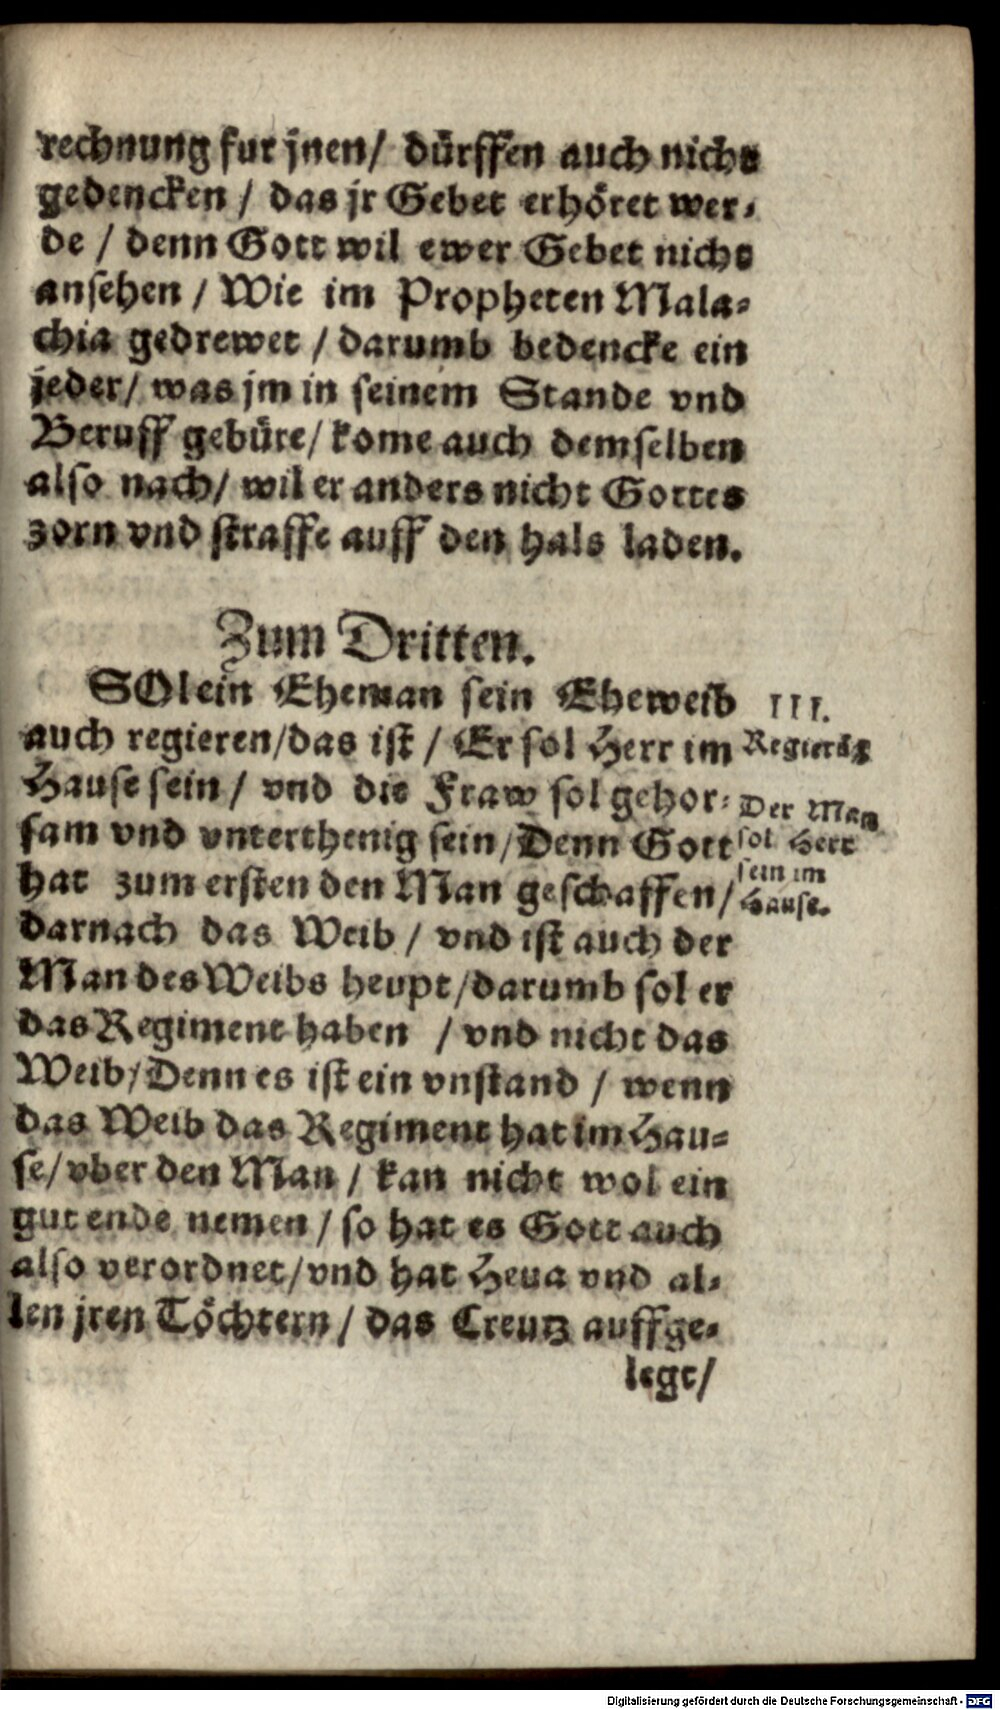 rechnung fur jnen/ dürffen auch nicht
gedencken / das jr Gebet erhöret wer-
de / denn Gott wil ewer Gebet nicht
ansehen / Wie im Propheten Mala-
chia gedrewet / darumb bedencke ein
jeder/ was jm in seinem Stande vnd
Beruff gebüre/ kome auch demselben
also nach/ wil er anders nicht Gottes
zorn vnd straffe auff den hals laden.
Zum Dritten.
SOl ein Eheman sein Eheweib
auch regieren/das ist / Er sol Herr im
Hause sein / vnd die Fraw sol gehor-
sam vnd vnterthenig sein/Denn Gott
hat zum ersten den Man geschaffen/
darnach das Weib / vnd ist auch der
Man des Weibs heupt/darumb sol er
das Regiment haben / vnd nicht das
Weib/Denn es ist ein vnstand / wenn
das Weib das Regiment hat im Hau-
se/vber den Man / kan nicht wol ein
gut ende nemen / so hat es Gott auch
also verordnet/vnd hat Heua vnd al-
len jren Töchtern / das Creutz auffge-
legt/
III.
Der Man
sol Herr
sein im
Hause.
Digitalisierung gefördert durch die Deutsche Forschungsgemeinschaft - DFG